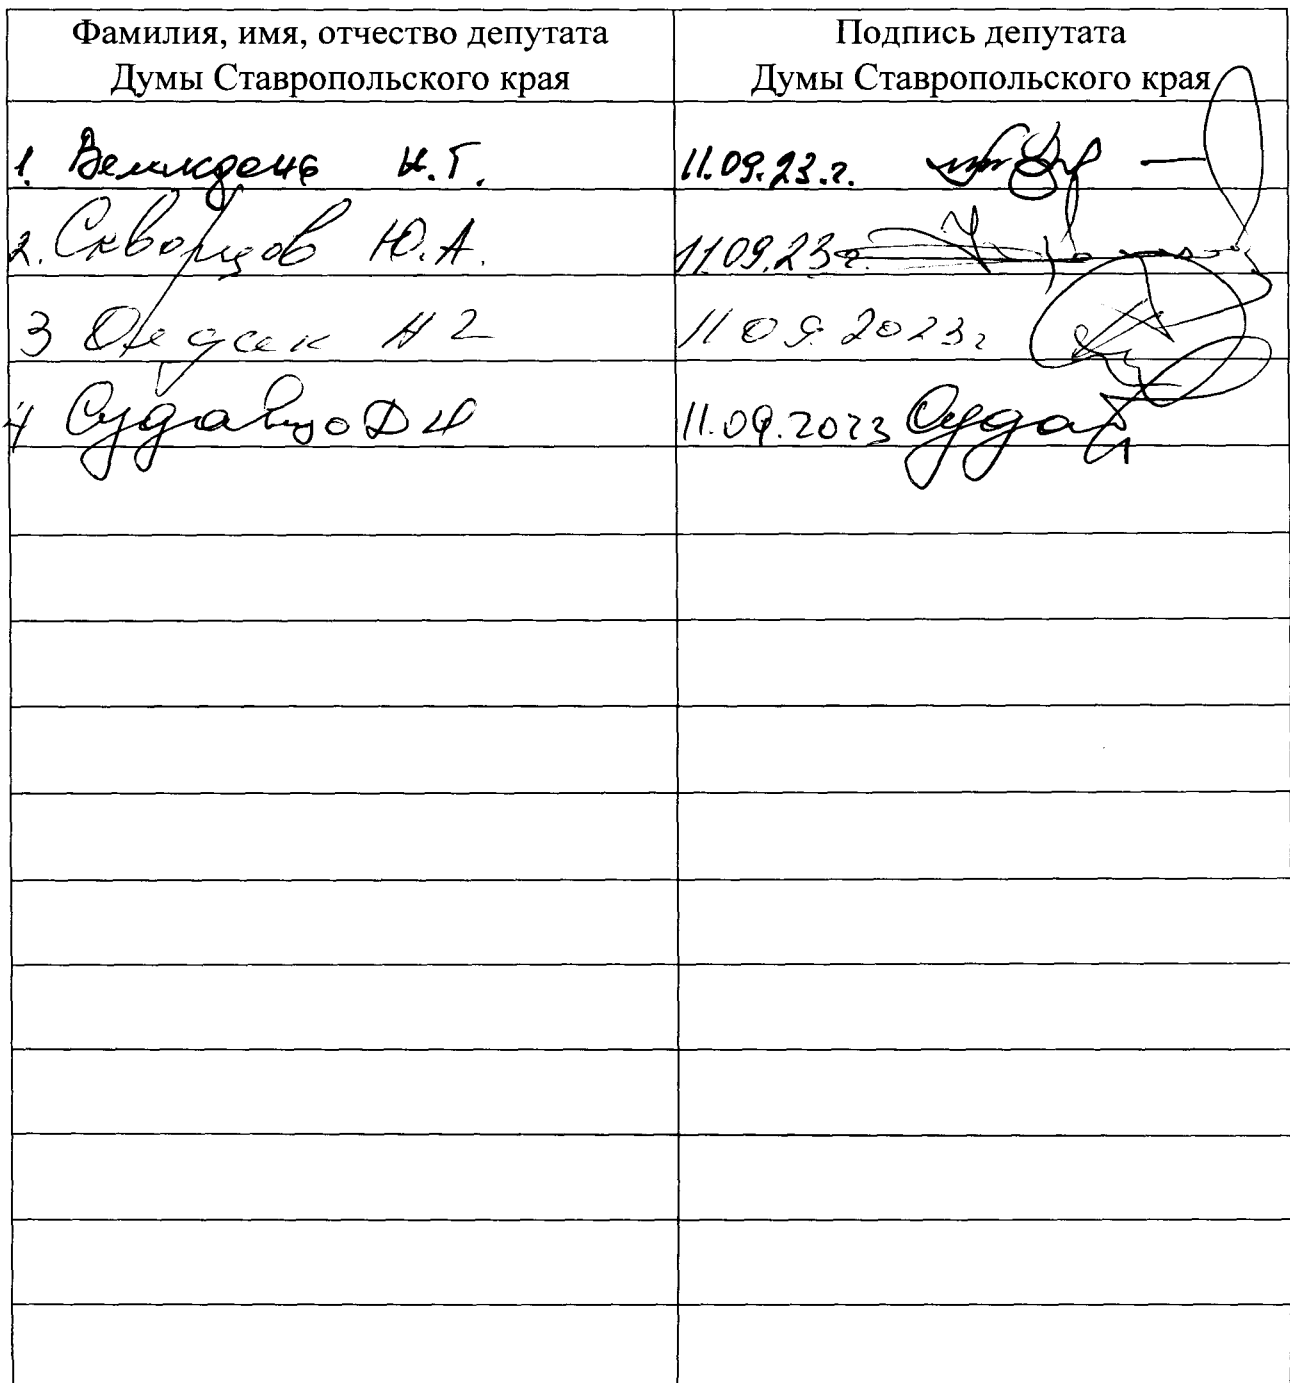 Фамилия, имя, отчество депутата
Думы Ставропольского края
Подпись депутата
Думы Ставропольского края
1. Великдань Н.Г. 11.09.23.г.
2. Скворцов Ю.А. 11.09.23г.
3 Н Г 11 09 2023г
4 Судавцо Д Н 11.09.2023 Судав